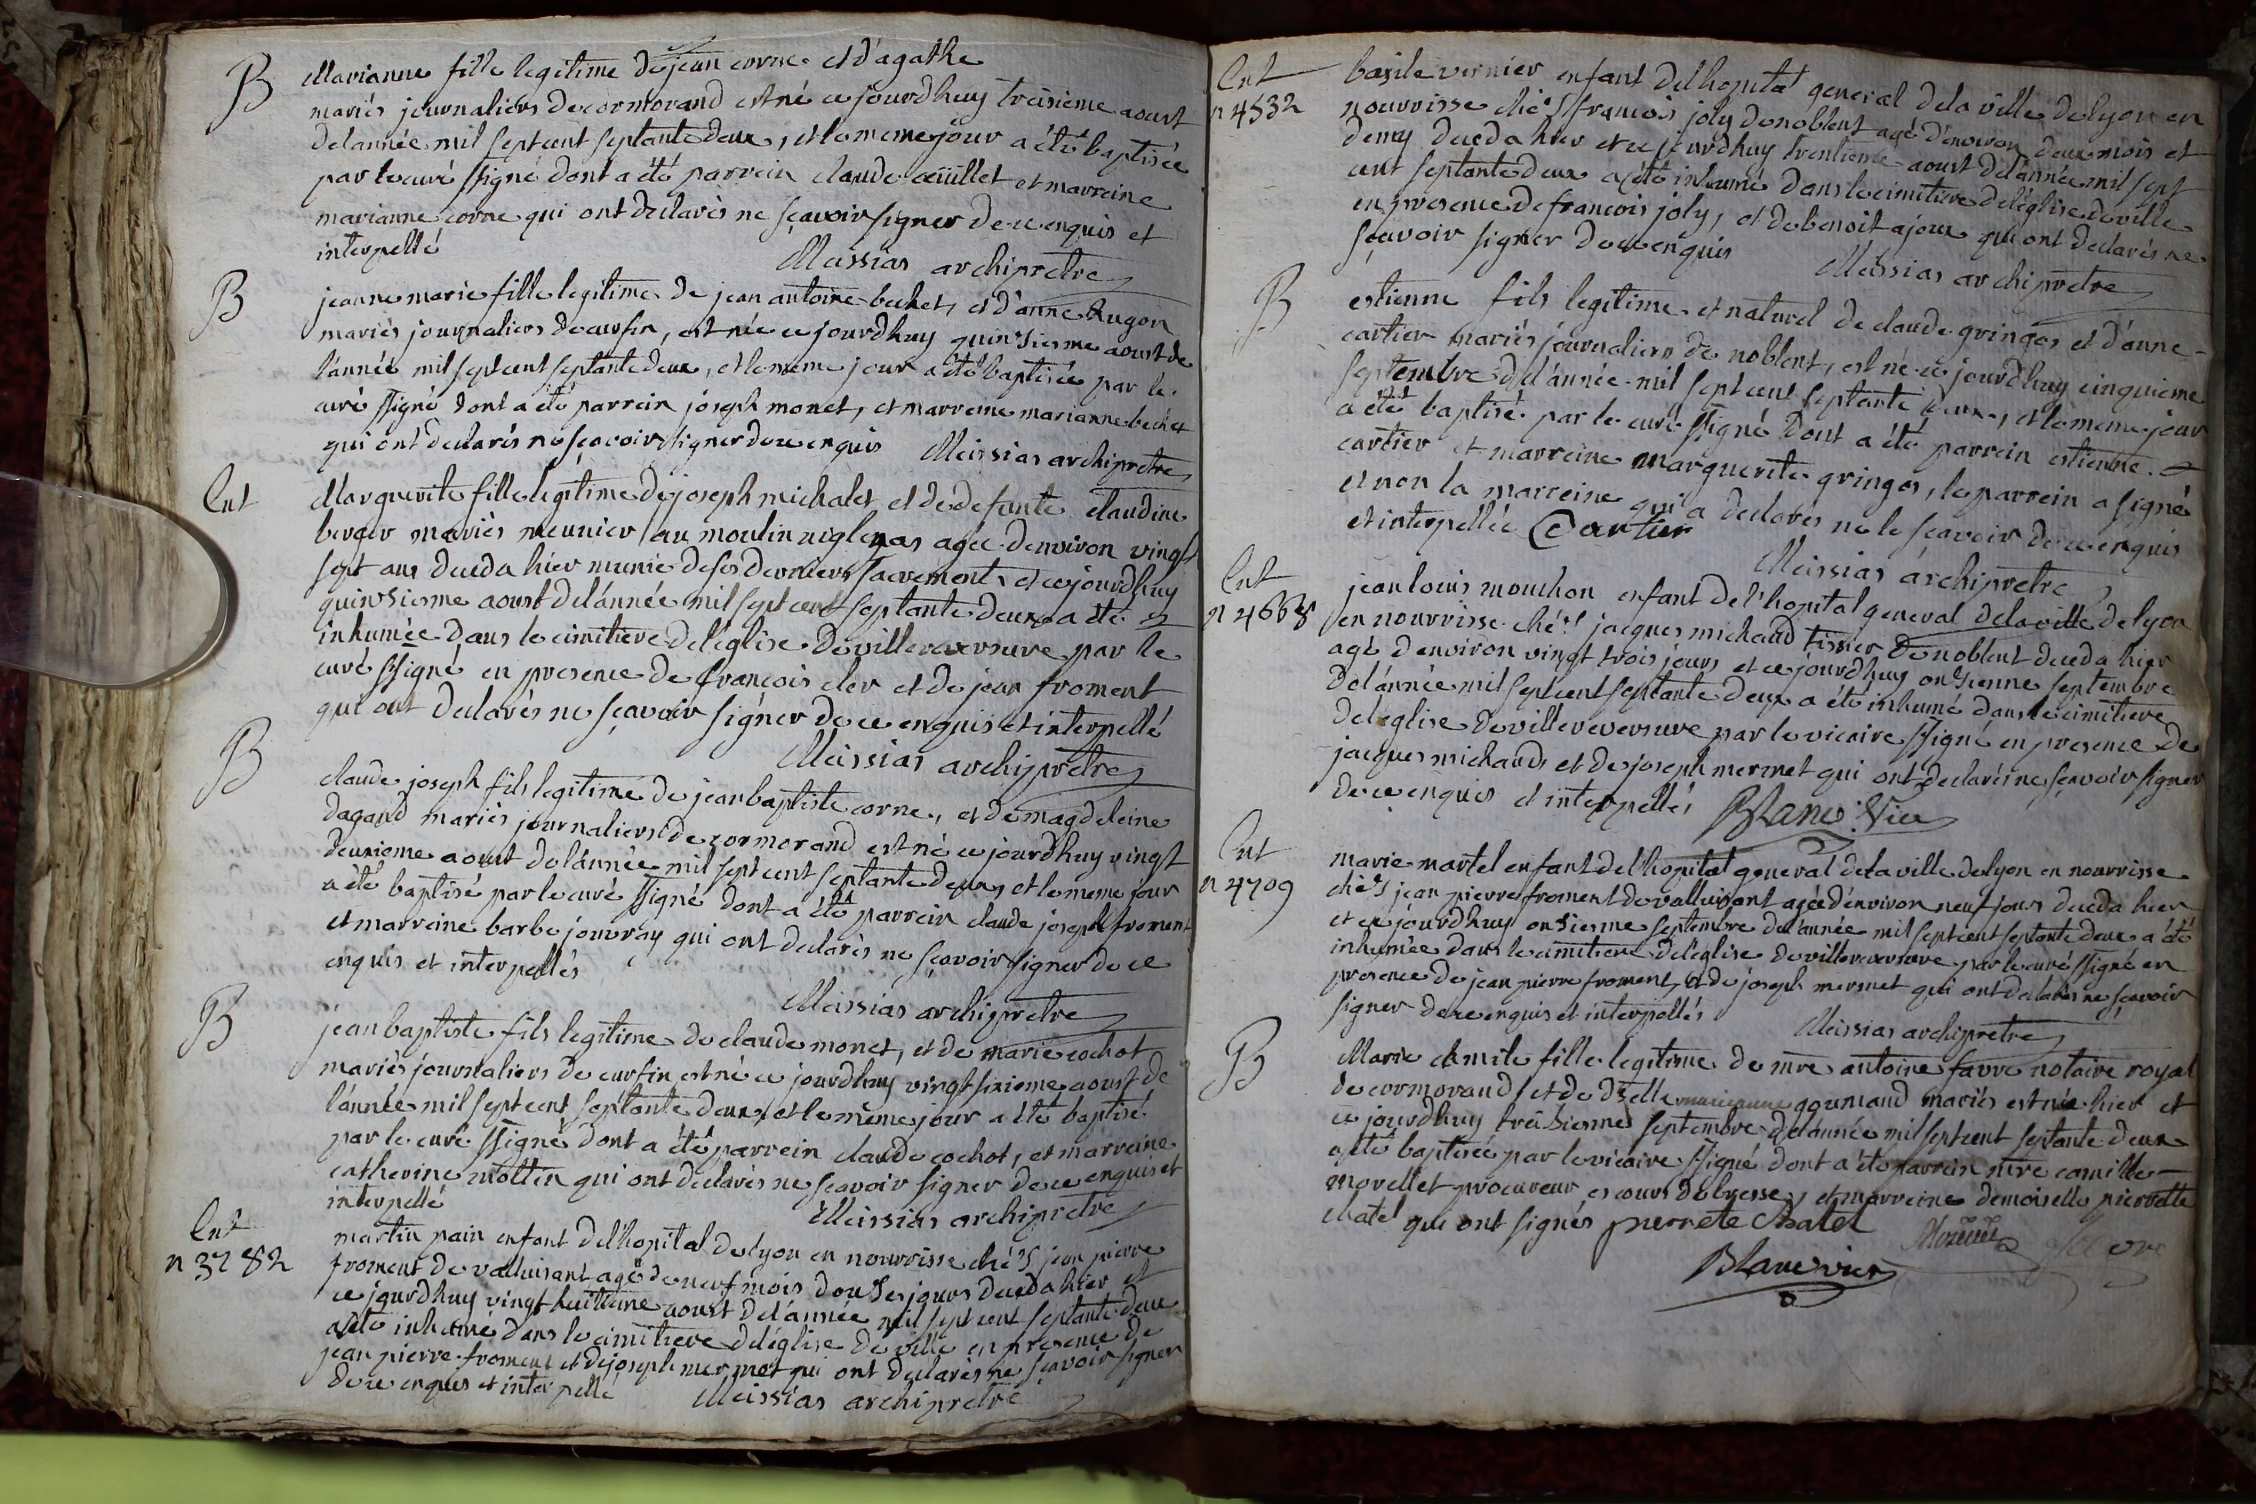 B
Marianne fille legitime de jean corne et d'agathe
mariés journaliers de cormorand est né ce jourdhuy treisieme aoust
de lannée mil sept cent septante deux, et le meme jour a été baptisée
par le curé ssigné dont a été parrein claude œüillet et marreine
marianne corne qui ont declarés ne sçavoir signer de ce enquis et
interpellé
Meissias archiprêtre
B
jeanne marie fille legitime de jean antoine bechet, et d'anne hugon
mariés journaliers de curfin, est née ce jourdhuy quinsieme aoust de
l'année mil sept cent septante deux, et le meme jour a été baptisée par le
curé ssigné dont a été parrein joseph monet, et marreine marianne bechet
qui ont declarés ne sçavoir signer de ce enquis Meissias archiprêtre
Ent
Marguerite fille legitime de joseph michalet et de defunte claudine
berger mariés meunier au moulin agée denviron vingt
sept ans deceda hier munie de ses derniers sacrements et ce jourdhuy
quinsiesme aoust de l'année mil sept cent septante deux a été
inhumée dans le cimitiere de l'église de villereversure par le
curé ssigné en presence de françois cler et de jean froment
qui ont declarés ne sçavoir signer de ce enquis et interpellé
Meissias archiprêtre
B
claude joseph fils legitime de jean baptiste corne, et de magdeleine
dagand mariés journaliers de cormorand est né ce jourdhuy vingt
deuxieme aoust de l'année mil sept cent septante deux, et le meme jour
a été baptisé par le curé ssigné dont a été parrein claude joseph froment
et marreine barbe jouvray qui ont declarés ne sçavoir signer de ce
enquis et interpellés
Meissias archiprêtre
B
jean baptiste fils legitime de claude monet, et de marie cochot
mariés journaliers de curfin est né ce jourdhuy vingt sixieme aoust de
l'année mil sept cent septante deux, et le même jour a été baptisé
par le curé ssigné dont a été parrein claude cochot, et marreine
catherine mottin qui ont declarés ne sçavoir signer de ce enquis et
interpellé
Meissias archiprêtre
Ent
n 3782
martin pain enfant de l'hopital de lyon en nourrisse ché s jean pierre
froment de valluisant agé de neuf mois douse jours deceda hier et
ce jourdhuy vingt huitieme aoust de l'année mil sept cent septante deux
a été inhumé dans le cimitiere de l'église de ville en presence de
jean pierre froment et de joseph mermet qui ont declarés ne sçavoir signer
de ce enquis et interpellé Meissias archiprêtre
Ent
n 4532
basile vernier enfant de l'hopital general de la ville de lyon en
nourrisse ché s francois joly de noblent agé d'environ deux mois et
demy deceda hier et ce jourdhuy trentieme aoust de l'année mil sept
cent septante deux a été inhumé dans le cimitiere de l'église de ville
en presence de francois joly, et de benoit ajoux qui ont declarés ne
sçavoir signer de ce enquis
Meissias archiprêtre
B
estienne fils legitime et naturel de claude gringos et d'anne
cartier mariés journaliers de noblent, est né ce jourdhuy cinquieme
septembre de l'année mil sept cent septante deux, et le meme jour
a été baptisé par le curé ssigné dont a été parrein estienne
cartier et marreine marguerite gringos, le parrein a signé
et non la marreine qui a declarés ne le sçavoir de ce enquis
et interpellée Cartier
Meissias archiprêtre
Ent
n 4668
jean louis mouchon enfant de l'hopital general de la ville de lyon
en nourrisse ché s jacques michaud tissier de noblent deceda hier
agé d'environ vingt trois jours et ce jourdhuy onsienne septembre
de l'année mil sept cent septante deux a été inhumé dans le cimitiere
de l'eglise de villereversure par le vicaire ssigné en presence de
jacques michaud et de joseph mermet qui ont declarés ne sçavoir signer
de ce enquis et interpellés Blanc Vic
Ent
n 4709
marie martel enfant de l'hopital general de la ville de lyon en nourrisse
ché s jean pierre froment de valluisant agée d'environ neuf jours deceda hier
et ce jourdhuy onsiesme septembre de l'année mil sept cent septante deux a été
inhumée dans le cimitiere de l'église de villereversure par le curé ssigné en
presence de jean pierre froment, et de joseph mermet qui ont declarés ne sçavoir
signer de ce enquis et interpellés
Meissias archiprêtre
B
Marie camile fille legitime de mre antoine favre notaire royal
de cormorand, et de dselle marianne gourmand mariés est née hier et
ce jourdhuy treisiesme septembre de l'année mil sept cent septante deux
a été baptisée par le vicaire ssigné dont a été parrein mre camille
morellet procureur es cours de bresse, et marreine demoiselle pierrette
chatel qui ont signés pierrete chatel Morellet favre
Blanc vic